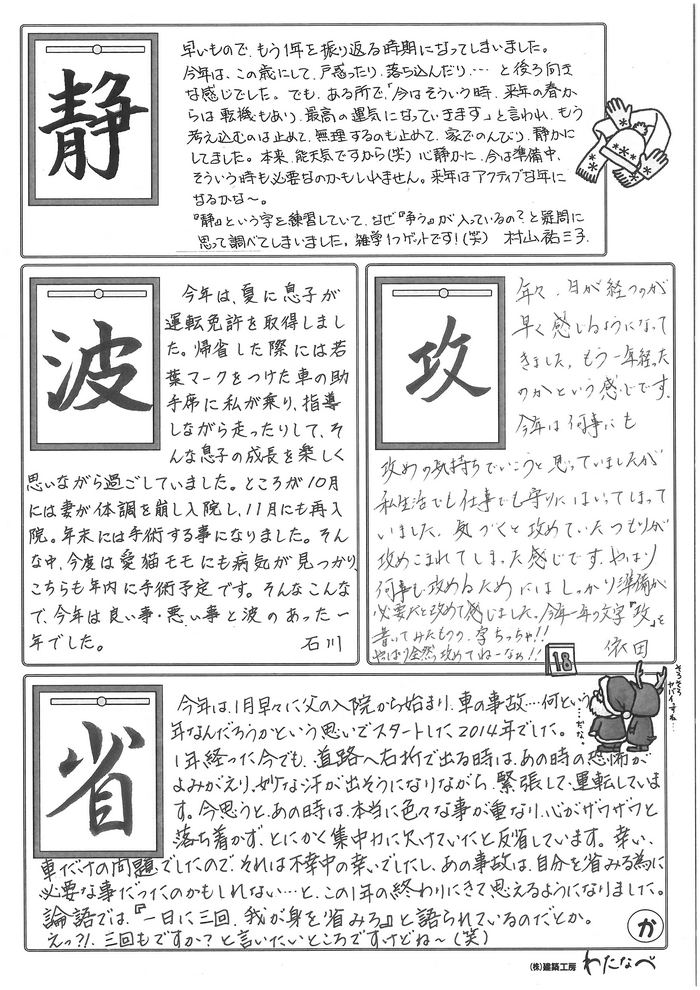 静
早いもので、もう1年を振り返る時期になってしまいました。
今年は、この歳にして、戸惑ったり、落ち込んだり…と後ろ向き
な感じでした。でも、ある所で、「今はそういう時、来年の春か
らは転機もあり、最高の運気になっていきます」と言われ、もう
考え込むのは止めて、無理するのも止めて、家でのんびり、静かに
してました。本来、能天気ですから(笑) 心静かに、今は準備中、
そういう時も必要なのかもしれません。来年はアクティブな年に
なるかな〜。
『静』という字を練習していて、なぜ『争う』が入っているの?と疑問に
思って調べてしまいました。雑学1つゲットです!(笑) 村山祐三子
波
今年は、夏に息子が
運転免許を取得しまし
た。帰省した際には若
葉マークをつけた車の助
手席に私が乗り、指導
しながら走ったりして、そ
んな息子の成長を楽しく
思いながら過ごしていました。ところが10月
には妻が体調を崩し入院し、11月にも再入
院。年末には手術する事になりました。そん
な中、今度は愛猫モモにも病気が見つかり、
こちらも年内に手術予定です。そんなこんな
で、今年は良い事・悪い事と波のあった一
年でした。 石川
攻
年々、日が経つのが
早く感じるようになって
きました。もう一年経った
のかという感じです。
今年は何事にも
攻めの気持ちでいこうと思っていましたが
私生活でも仕事でも守りにはいってしまって
いました。気づくと攻めていたつもりが
攻めこまれてしまった感じです。やはり
何事も攻めるためにはしっかり準備が
必要だと改めて感じました。今年一年の文字「攻」を
書いてみたものの、字ちっちゃ!!
やはり全然攻めてねーなぁ!! 依田
18
そろそろ
ヤバイすね…
…だな。
省
今年は、1月早々に父の入院から始まり、車の事故…何という
年なんだろうかという思いでスタートした2014年でした。
1年経った今でも、道路へ右折で出る時は、あの時の恐怖が
よみがえり、妙な汗が出そうになりながら、緊張して運転していま
す。今思うと、あの時は、本当に色々な事が重なり、心がザワザワと
落ち着かず、とにかく集中力に欠けていたと反省しています。幸い、
車だけの問題でしたので、それは不幸中の幸いでしたし、あの事故は、自分を省みる為に
必要な事だったのかもしれない…と、この1年の終わりにきて思えるようになりました。
論語では、『一日に三回、我が身を省みろ』と語られているのだとか。
えっ?!、三回もですか?と言いたいところですけどね〜(笑)
か
(株)建築工房 わたなべ